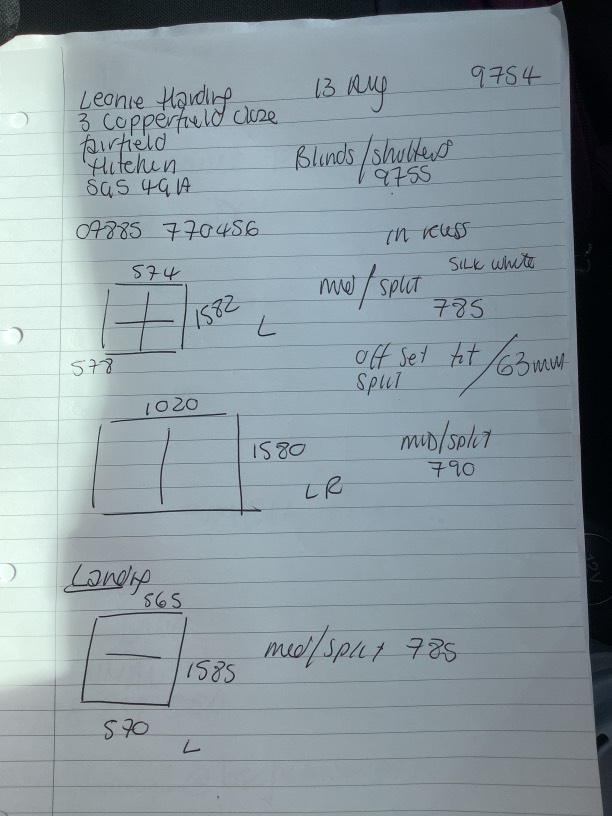 Leonie Harding 13 Aug 9754
3 Copperfield Close
Fairfield
Hitchen
SG5 4GA
Blinds/shutters
9755
07885 770456
in recess
574
1582
L
578
mid/split
SILK white
785
off set tilt/63mm
split
1020
1580
LR
mid/split
790
Landing
565
1585
mid/split 785
570
L